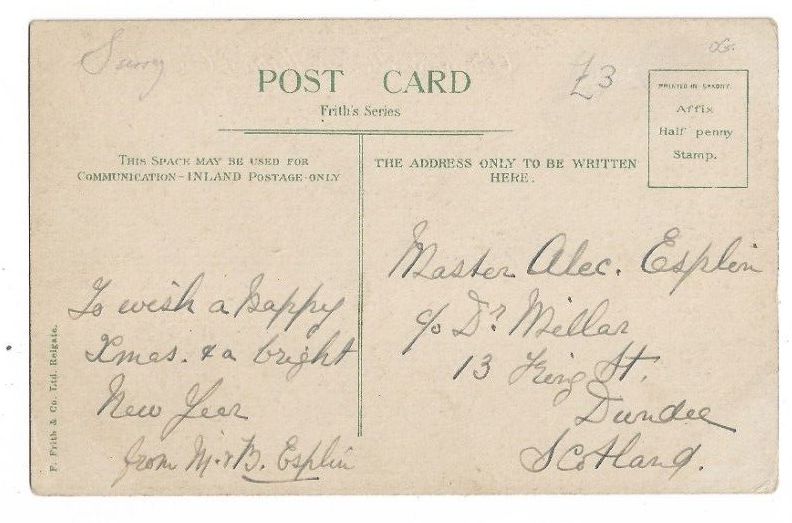 Surrey
POST CARD
Frith's Series
£3
PRINTED IN SAXONY.
Affix
Half penny
Stamp.
THIS SPACE MAY BE USED FOR
COMMUNICATION—INLAND POSTAGE ONLY
THE ADDRESS ONLY TO BE WRITTEN
HERE.
To wish a happy
Xmas. & a bright
New Year
from M. & B. Esplin
Master Alec. Esplin
c/o Dr. Millar
13 King St.
Dundee
Scotland.
F. Frith & Co. Ltd. Reigate.